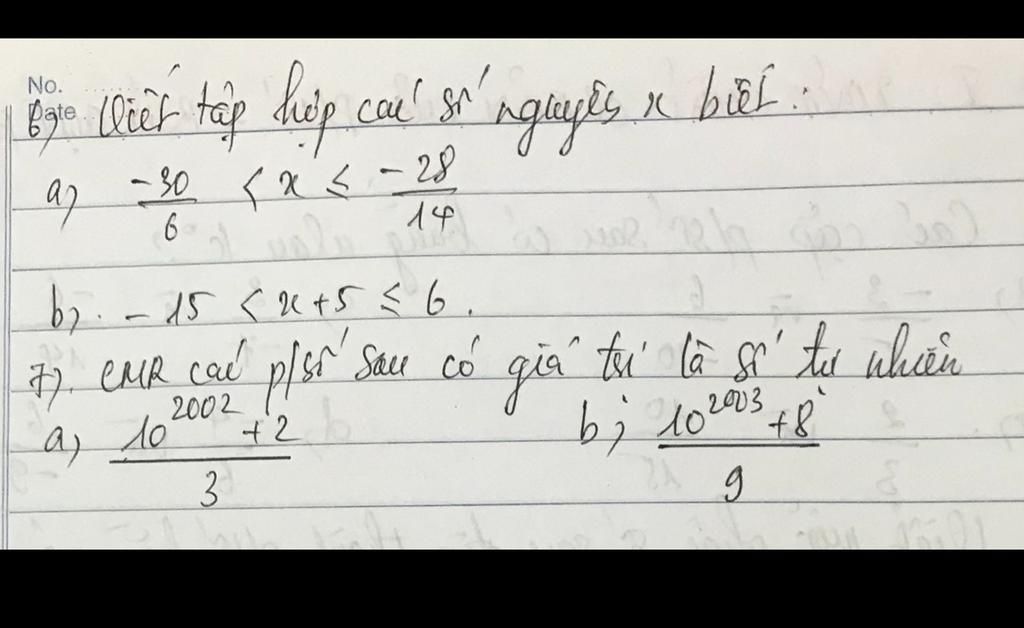 No.
Date
6) Viết tập hợp các số nguyên x biết:
a) -30/6 < x ≤ -28/14
b). -15 < x+5 ≤ 6.
7). CMR các p/số sau có giá trị là số tự nhiên
a) (10^2002 + 2)/3 b) (10^2003 + 8)/9